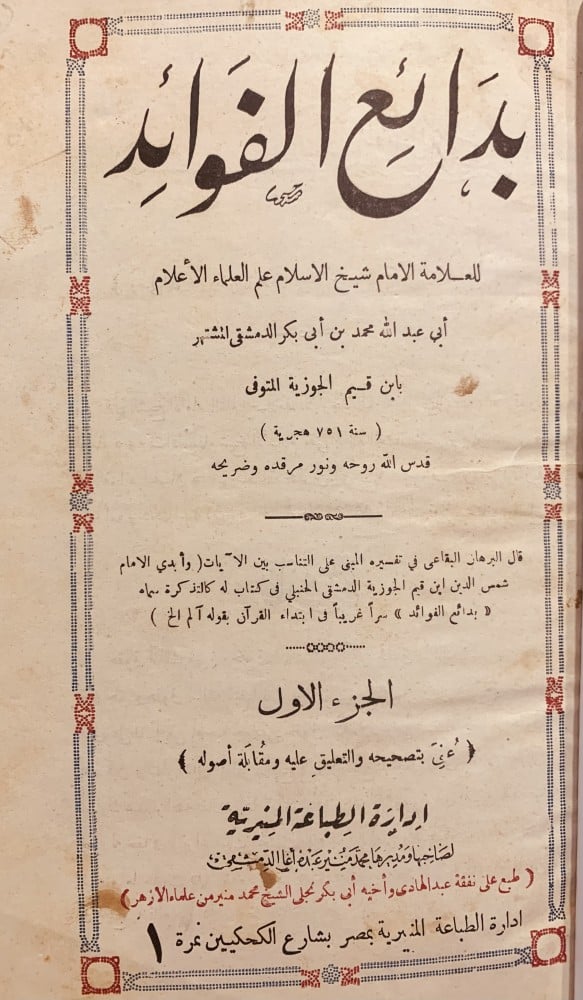 بَدَائِع الفَوَائِد
للعلامة الامام شيخ الاسلام علم العلماء الأعلام
أبي عبد الله محمد بن أبى بكر الدمشقى المشتهر
بابن قسيم الجوزية المتوفى
( سنة ٧٥١ هجرية )
قدس الله روحه ونور مرقده وضريحه
قال البرهان البقاعى في تفسيره المبنى على التناسب بين الآيات( وأبدي الامام
شمس الدين ابن قيم الجوزية الدمشقى الحنبلي فى كتاب له كالتذكرة سماه
« بدائع الفوائد » سراً غريباً فى ابتداء القرآن بقوله آلم الخ )
الجزء الاول
( عُنِىَ بتصحيحه والتعليق عليه ومقُابَلة أصوله )
اِدارَة الِطباعَة المنِيرتية
لصَاحِبها وَمُديرهَا محمّد مُنير عَبده أغا الدّمشقى
( طبع على نفقة عبد الهادى وأخيه أبي بكر نجلى الشيخ محمد منير من علماء الأزهر )
ادارة الطباعة المنيرية بمصر بشارع الكحكيين نمرة ١